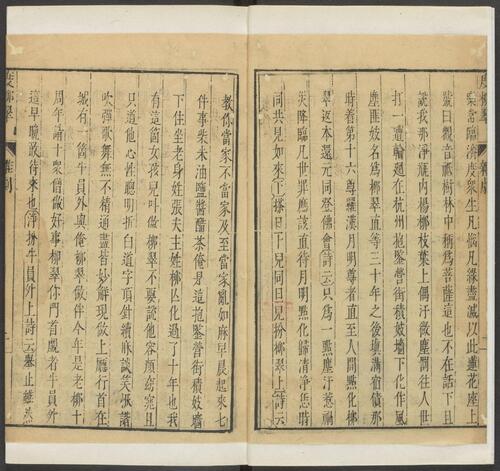 當臨濟度衆生凡惱凡緣盡滅以此蓮花座上
號曰觀音祇樹林中稱爲菩薩這也不在話下且
說我那淨瓶內楊柳枝葉上偶汙微塵罰往人世
打一遭輪迴在杭州抱鑒營街積妓牆下化作風
塵匪妓名爲柳翠直等三十年之後填滿宿債那
時着第十六尊羅漢月明尊者直至人間點化柳
翠返本還元同登佛會詩云只爲一點塵汙惹禍
天降臨凡世罪應該直待月明點化歸清淨恁時
同共見如來下搽旦卜兒同旦兒扮柳翠上詩云
教你當家不當家及至當家亂如麻早晨起來七
件事柴米油鹽醬醋茶俺是這抱鑒營街積妓牆
下住坐老身姓張夫主姓柳亡化過了十年也我
有這箇女孩兒叫做柳翠不要說他容顏窈窕且
只道他心性聰明折白道字頂針續麻談笑恢諧
吹彈歌舞無不精通盡皆妙解現做上廳行首在
城有一箇牛員外與俺柳翠做伴今年是老柳十
周年請十衆僧做好事柳翠你門首覷着牛員外
這早晚敢待來也淨扮牛員外上詩云舉止雖然
度柳翠 雜劇